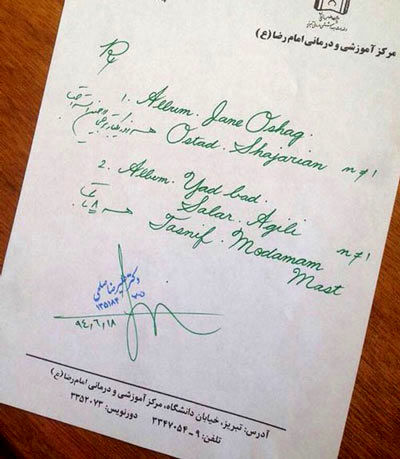 مرکز آموزشی و درمانی امام رضا (ع)
1. Album. Jane Oshaq.
Ostad. Shajarian n≠1
2. Album. Yad bad.
Salar. Agili n≠1
Tasnif. Modamam
Mast
دکتر علیرضا سلیمی
۱۳۵۱۸۳
۹۴,۶,۱۸
آدرس: تبریز، خیابان دانشگاه، مرکز آموزشی و درمانی امام رضا (ع)
تلفن: ۹-۳۳۴۷۰۵۴ دورنویس: ۳۳۵۲۰۷۳